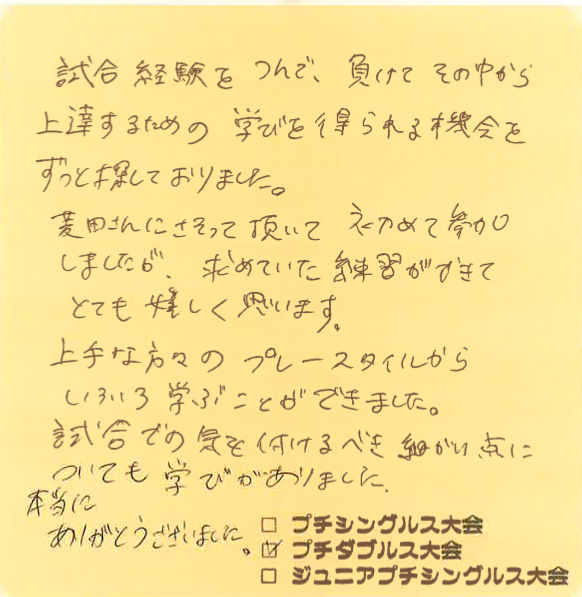 試合経験をつんで、負けてその中から
上達するための学びを得られる機会を
ずっと探しておりました。
菱田さんにさそって頂いて初めて参加
しましたが、求めていた練習ができて
とても嬉しく思います。
上手な方々のプレースタイルから
いろいろ学ぶことができました。
試合での気を付けるべき細かい点に
ついても学びがありました。
本当に
ありがとうございました。
□ プチシングルス大会
☑ プチダブルス大会
□ ジュニアプチシングルス大会